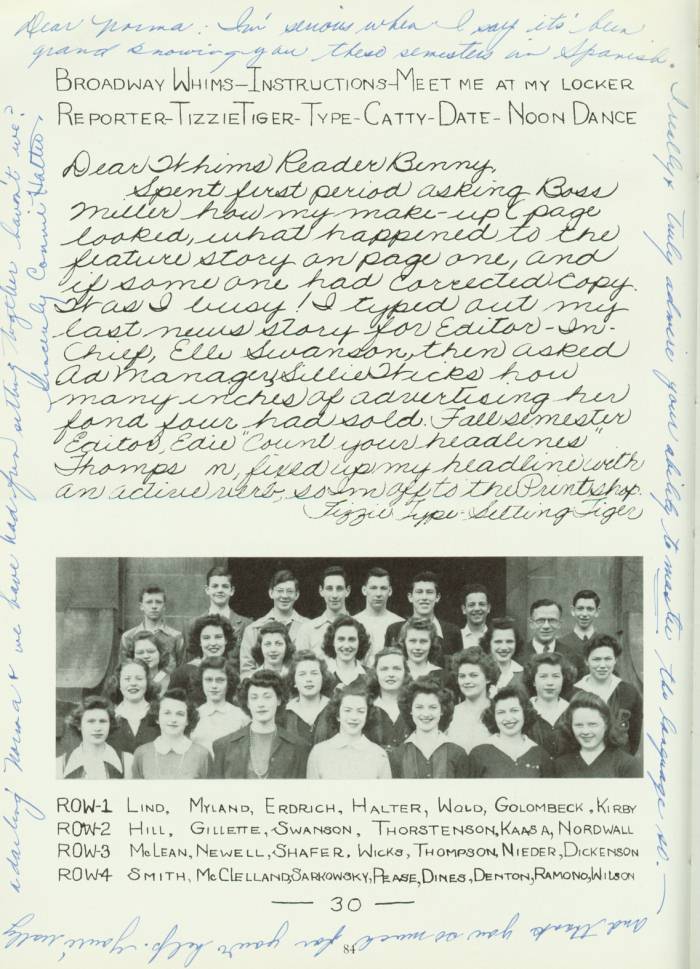 Dear Norma: I'm serious when I say it's been
grand knowing you these semesters in Spanish.
I really & truly admire your ability to master the language so. —
And thank you so much for your help. You're really
a darling Norma & we have had fun sitting together haven't we?
Sincerely Connie Halter
BROADWAY WHIMS-INSTRUCTIONS-MEET ME AT MY LOCKER
REPORTER-TIZZIETIGER-TYPE-CATTY-DATE-NOON DANCE
Dear Whims Reader Benny,
Spent first period asking Boss
Miller how my make-up page
looked, what happened to the
feature story on page one, and
if some one had corrected copy.
Was I busy! I typed out my
last news story for Editor-In-
Chief, Elle Swanson, then asked
Ad Manager, Sillie Wicks how
many inches of advertising her
fond four had sold. Fall semester
Editor, Edie "Count your headlines"
Thomps n, fixed up my headline with
an active verb, so I'm off to the Printshop.
Tizzie Type-Setting Tiger
ROW-1 LIND, MYLAND, ERDRICH, HALTER, WOLD, GOLOMBECK, KIRBY
ROW-2 HILL, GILLETTE, SWANSON, THORSTENSON, KAASA, NORDWALL
ROW-3 MCLEAN, NEWELL, SHAFER, WICKS, THOMPSON, NIEDER, DICKENSON
ROW4 SMITH, MCCLELLAND, SARKOWSKY, PEASE, DINES, DENTON, RAMONO, WILSON
— 30 —
84